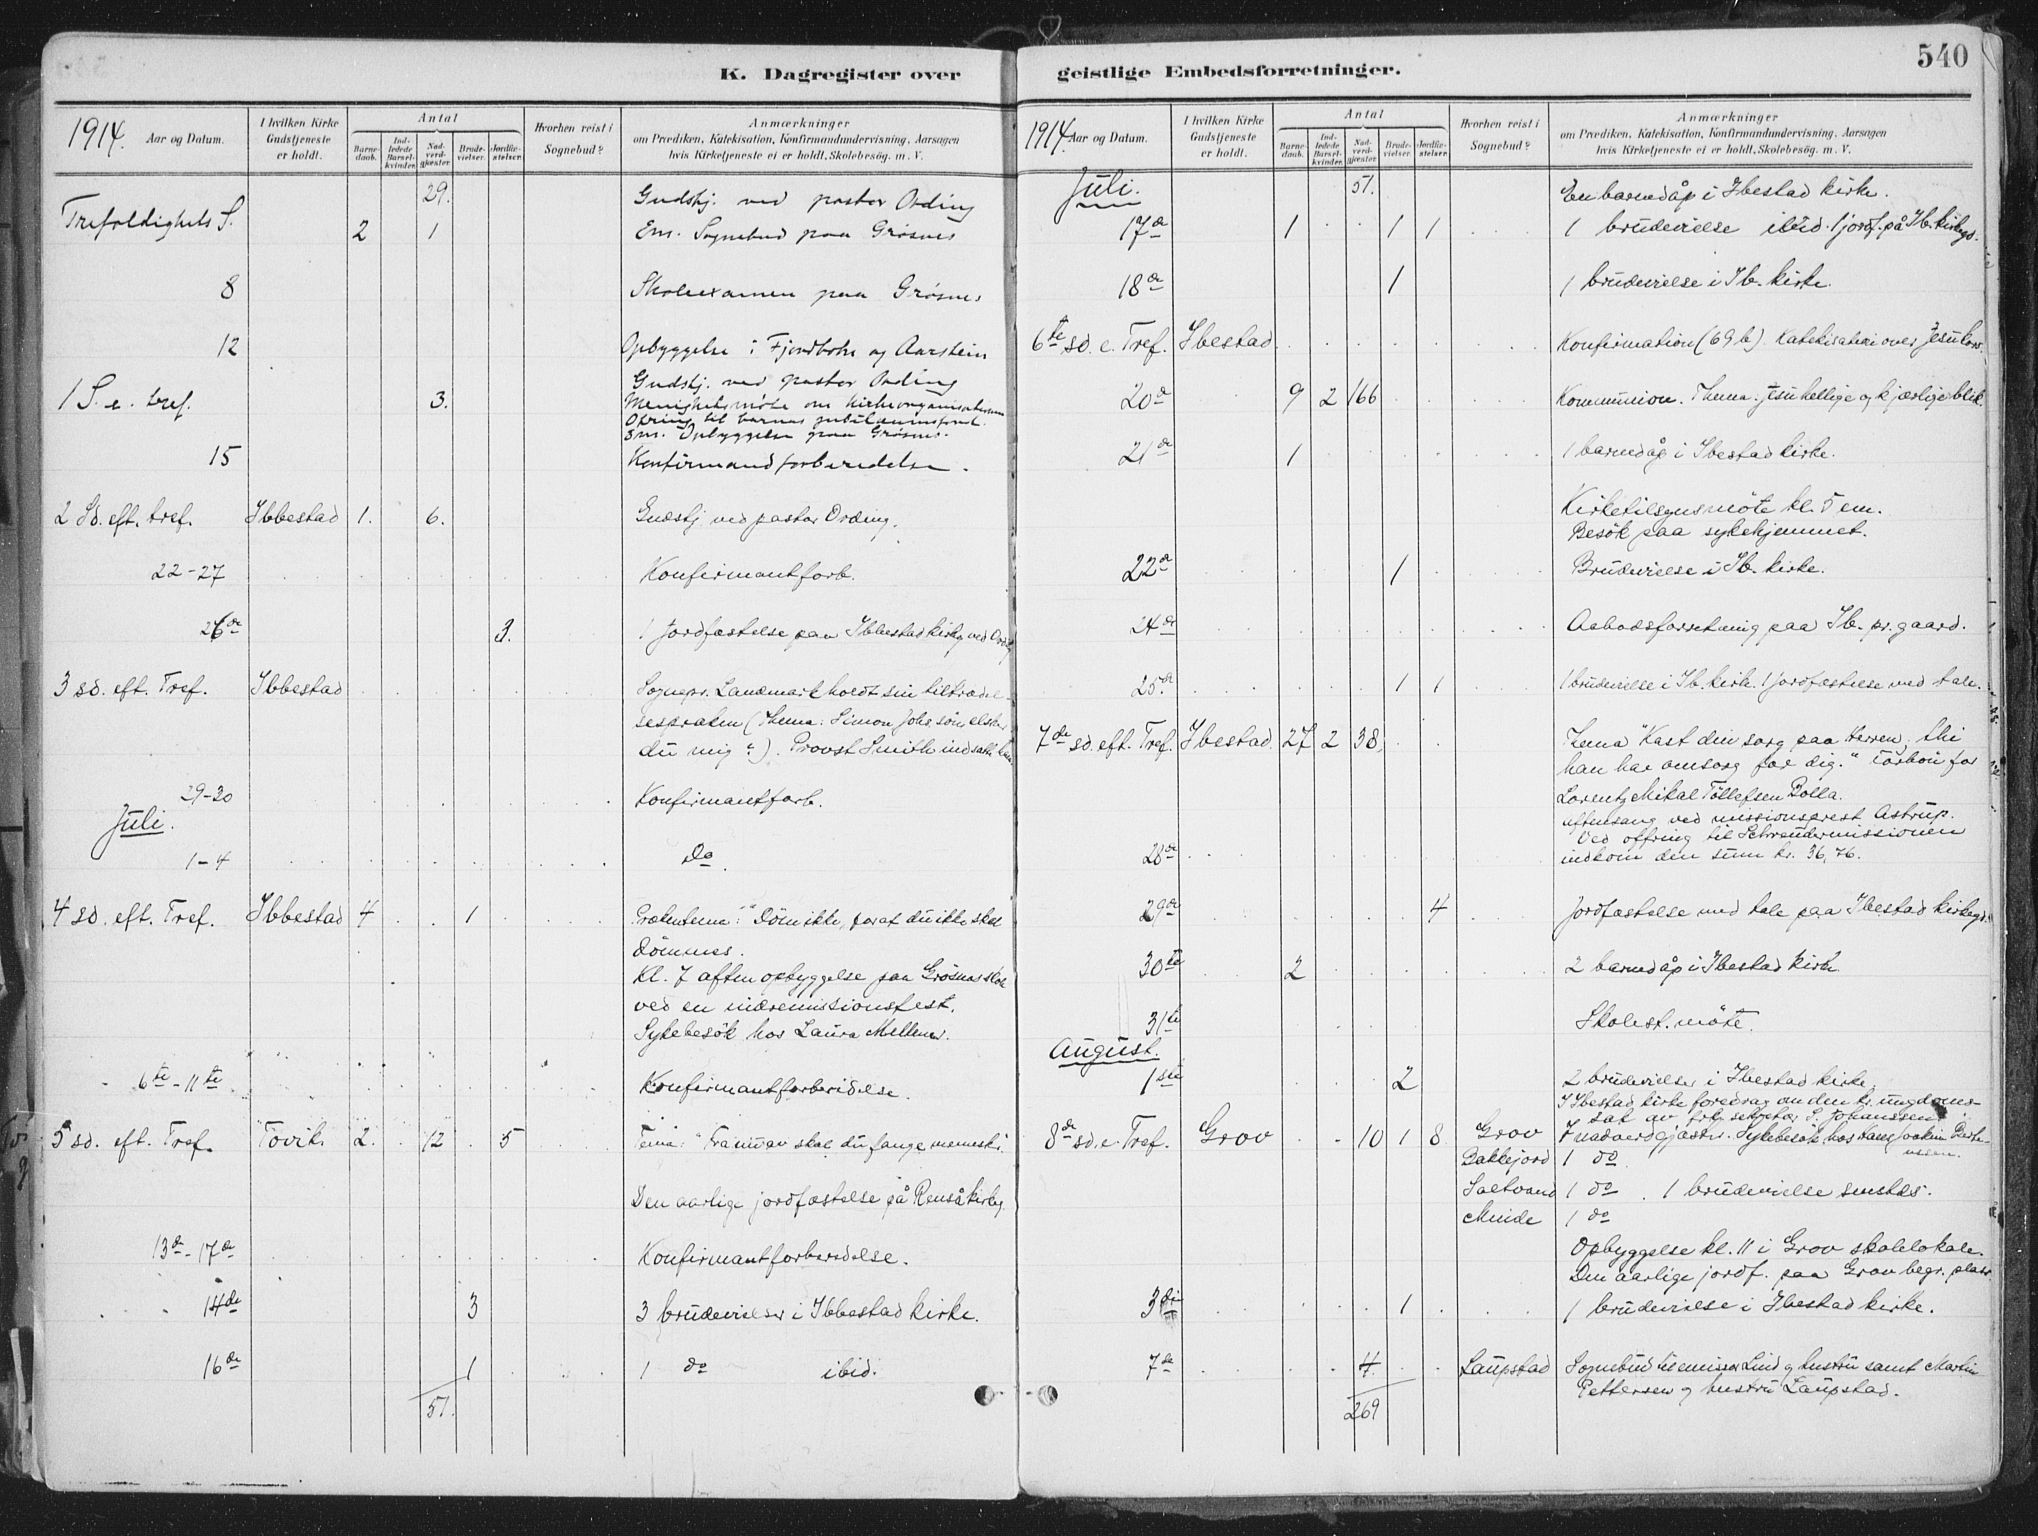 540
K. Dagregister over geistlige Embedsforretninger.
1914. Aar og Datum.
I hvilken Kirke Gudstjeneste er holdt.
Antal
Barnedaab.
Indledede Barselkvinder.
Nadverdgjæster.
Brudevielser.
Jordfæstelser.
Hvorhen reist i Sognebud?
Anmærkninger
om Prædiken, Katekisation, Konfirmandundervisning, Aarsagen
hvis Kirketjeneste ei er holdt, Skolebesøg. m. V.
29.
Gudstj. ved pastor Ording
Trefoldighets S. 2 1 Em. Sognebud paa Grøsnes
8 Skoleexamen paa Grøsnes
12 Opbyggelse i Fjordbotn og Aarstein
Gudstj. ved pastor Ording
1 S. e. tref. 3. Menighetsmøte om kirkeorganisationen
Ofring til barnas jubilæumsfond.
Em. Opbyggelse paa Grøsnes.
15 Konfirmandforberedelse.
2 Sd. eft. tref. Ibbestad 1. 6. Gudstj. ved pastor Ording.
22-27 Konfirmantforb.
26de 3. 1 Jordfæstelse paa Ibbestad kirkeg. ved Ording
3 sd. eft. Tref. Ibbestad Sognepr. Landmark holdt sin tiltrædel-
sespræken (Thema: Simon Johs søn elsker
du mig?). Provst Smith indsatte ham.
29-30 Konfirmantforb.
Juli.
1-4 Do.
4 sd. eft. Tref. Ibbestad 4 1 Prækentema: "Döm ikke, forat du ikke skal
dömmes.
Kl. 7 aften opbyggelse paa Grösnes skole
ved en indremissionsfest.
Sykebesök hos Laura
6te-11te Konfirmantforberidelse.
5 sd. eft. Tref. Tovik 2. 12 5 Tema: "Fra nu av skal du fange mennesker.
Den aarlige jordfæstelse på Rensåkirkeg.
13de-17de Konfirmantforberedelse.
14de 3 3 brudevielser i Ibbestad kirke.
16de 1 1 do ibid.
51.
1914. Aar og Datum.
I hvilken Kirke Gudstjeneste er holdt.
Antal
Barnedaab.
Indledede Barselkvinder.
Nadverdgjæster.
Brudevielser.
Jordfæstelser.
Hvorhen reist i Sognebud?
Anmærkninger
om Prædiken, Katekisation, Konfirmandundervisning, Aarsagen
hvis Kirketjeneste ei er holdt, Skolebesøg. m. V.
Juli. 51. En barnedåp i Ibestad kirke.
17de 1 1 1 1 brudevielse ibid. 1 jordf. på Ib. kirkegd.
18de 1 1 brudevielse i Ib. kirke.
6te sd. e. Tref. Ibestad Konfirmation (69 b). Katekisation over Jesu kors.
20de 9 2 166 Kommunion. Thema: Jesu hellige og kjærlige blik.
21de 1 1 barnedåp i Ibestad kirke.
Kirketilsynsmöte kl. 5 em.
Besök paa sykehjemmet.
22de 1 Brudevielse i Ib. kirke.
24de Aabodsforretning paa Ib. pr.gaard.
25de 1 1 1 brudevielse i Ib. kirke. 1 jordfæstelse med tale.
7de sd. eft. Tref. Ibestad 27 2 38. Thema "Kast din sorg paa Herren, thi
han har omsorg for dig." Forbön for
Lorentz Mikal Tollefsen Bolla.
Aftensang ved missionsprest Astrup.
Ved offring til Schreudermissionen
28de indkom den sum kr. 36,76.
29de 4 Jordfæstelse med tale paa Ibestad kirkegd.
30te 2 2 barnedåp i Ibestad kirke
31te Skolest. möte.
August.
1ste 2 2 brudevielser i Ibestad kirke.
I Ibestad kirke foredrag om den kr. ungdoms-
sak av frk. sekretær S. Johanssen.
8de sd. e. Tref. Grov 10 1 8 Grov 7 nadverdgjæster. Sykebesök hos Joakim
Bakkejord 1 do
Saltvand 1 do. 1 brudevielse
Minde 1 do
Opbyggelse kl. 11 i Grov skolelokale.
Den aarlige jordf. paa Grov begr. plass
3die 1 1 brudevielse i Ibestad kirke.
7de 4. Laupstad Sognebud til Lind og hustru samt Martin
Pettersen og hustru Laupstad.
269